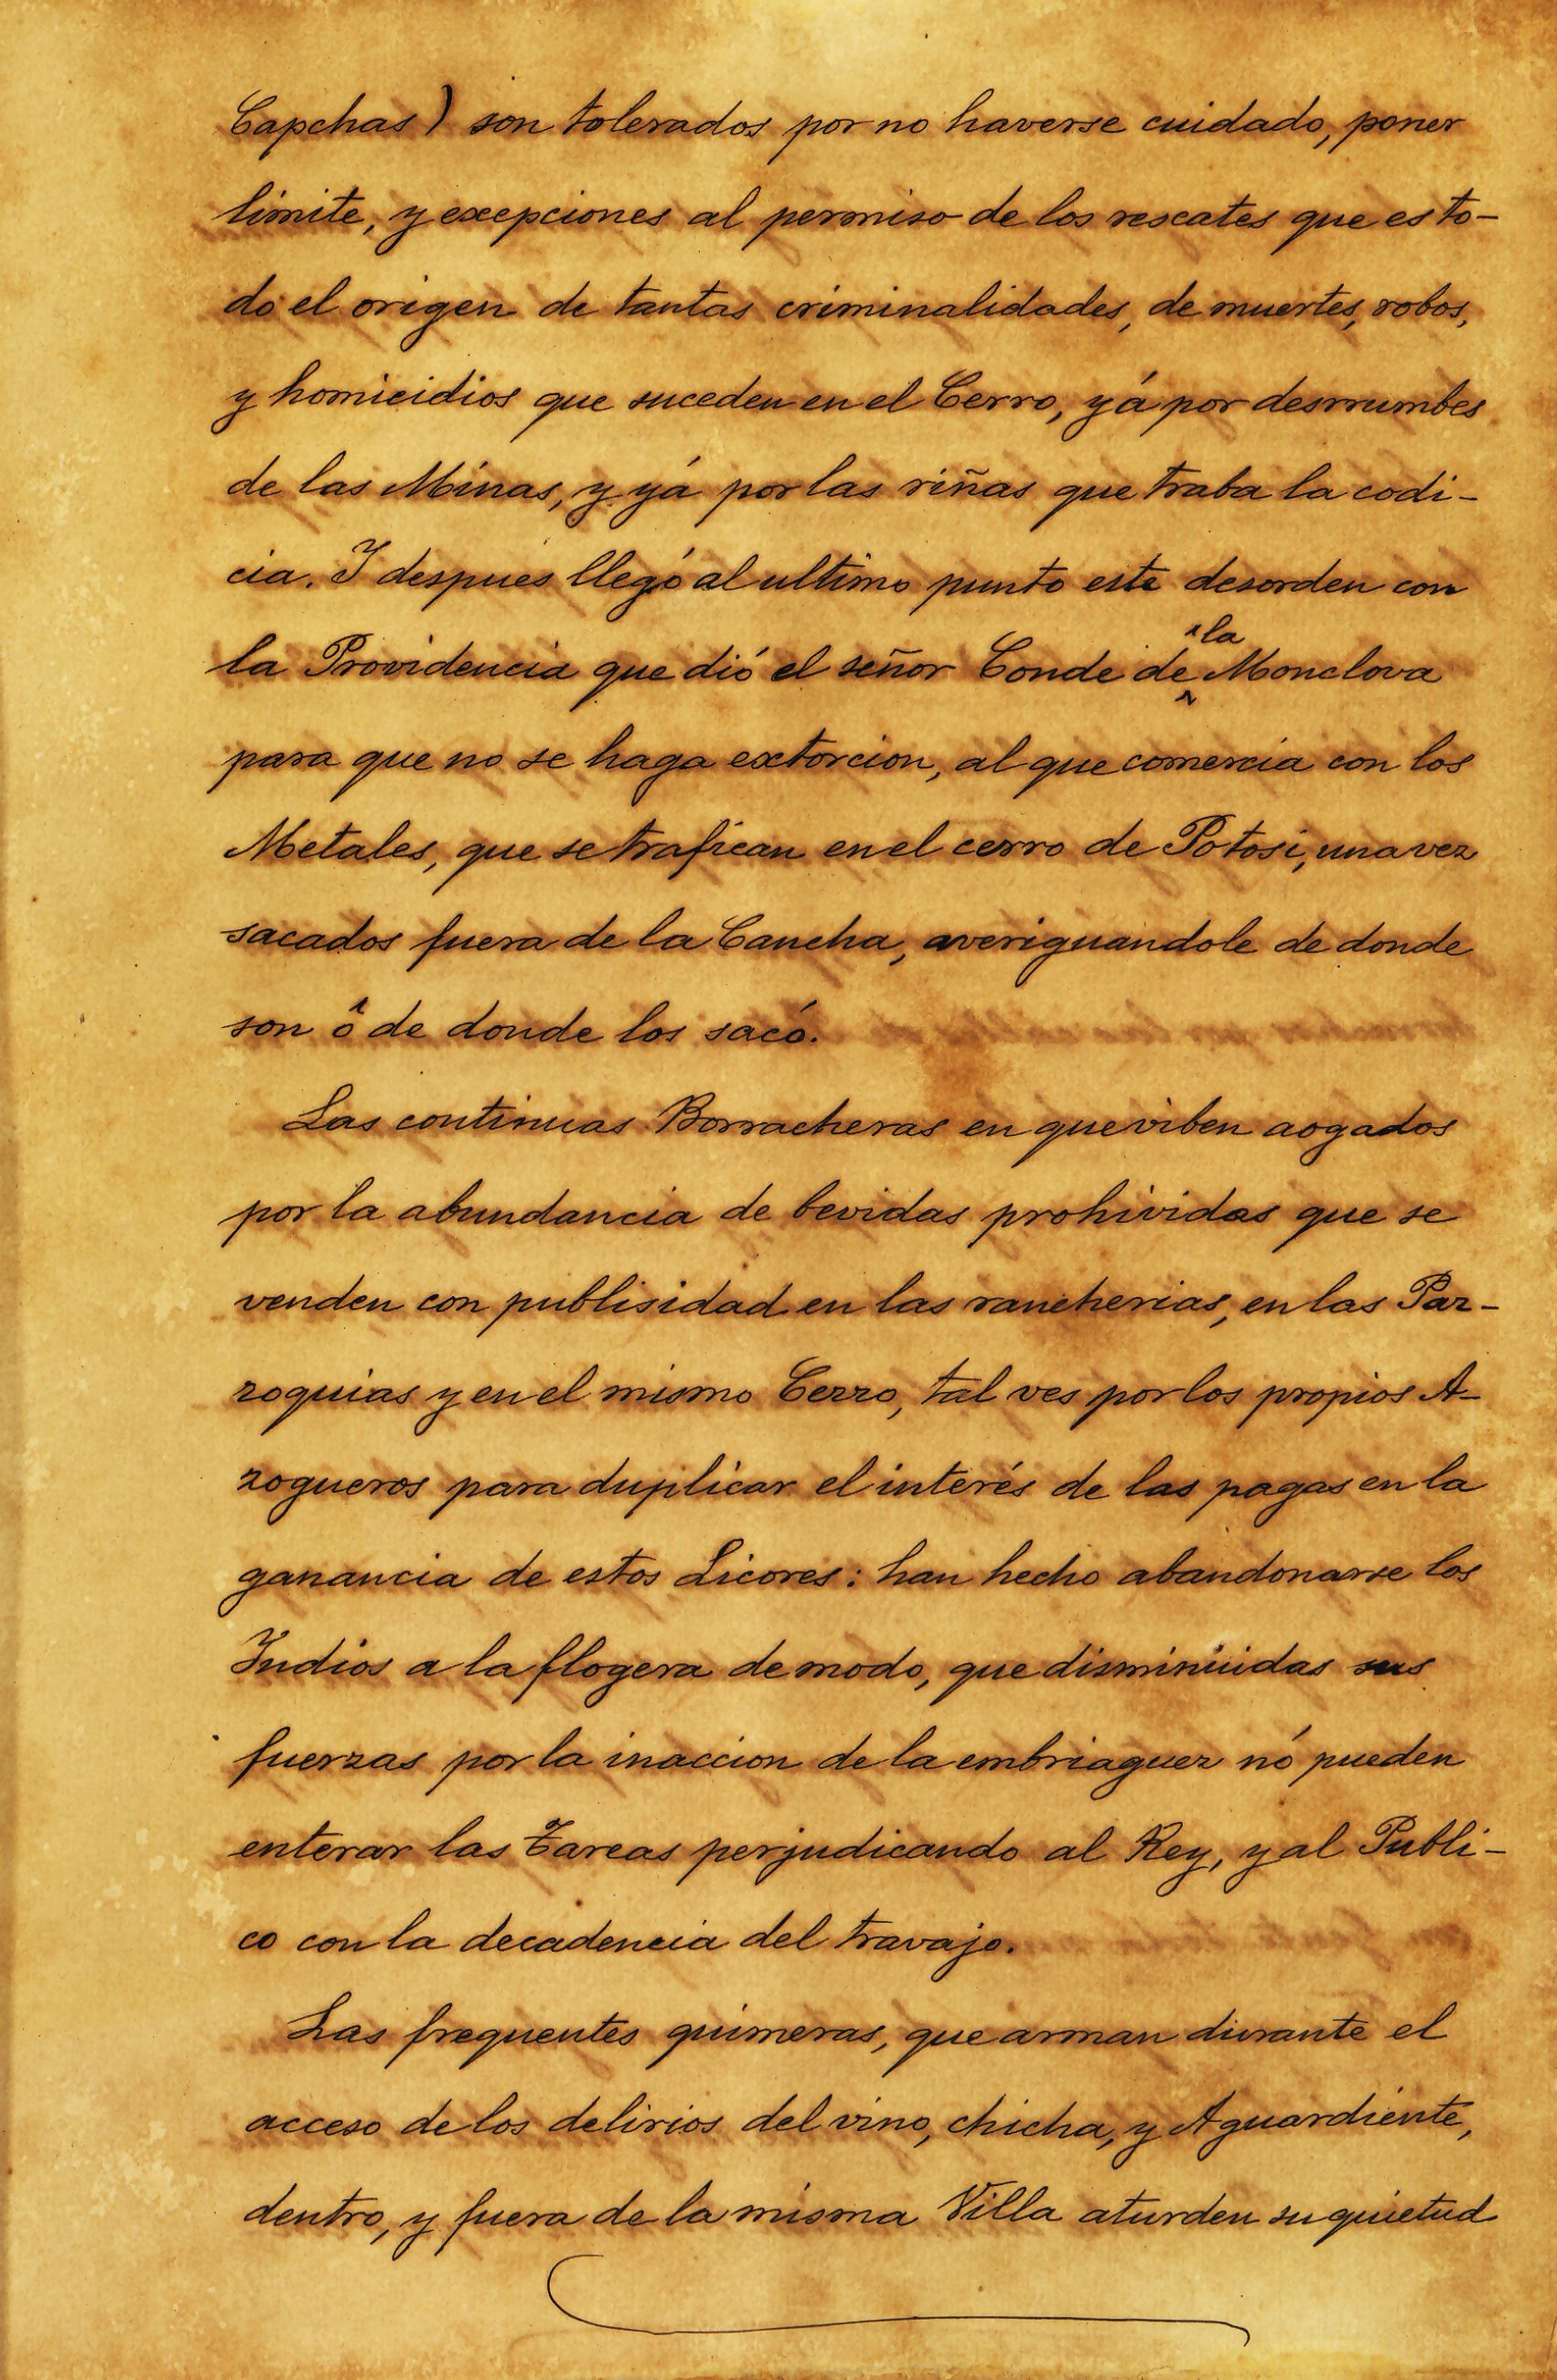 Capchas) son tolerados por no haverse cuidado, poner
limite, y exepciones al permiso de los rescates que es to-
do el origen de tantas criminalidades, de muertes, robos,
y homicidios que suceden en el Cerro, yá por desrrumbes
de las Minas, y yá por las riñas que traba la codi-
cia. I despues llegó al ultimo punto este desorden con
la Providencia que dió el señor Conde de la Monclova
para que no se haga extorcion, al que comercia con los
Metales, que se trafican en el cerro de Potosi, una vez
sacados fuera de la Cancha, averiguandole de donde
son ô de donde los sacó.
Las continuas Borracheras en que viben aogados
por la abundancia de bevidas prohividas que se
venden con publisidad en las rancherias, en las Par-
roquias y en el mismo Cerro, tal ves por los propios A-
zogueros para duplicar el interés de las pagas en la
ganancia de estos Licores: han hecho abandonarse los
Indios a la flogera de modo, que disminuidas sus
fuerzas por la inaccion de la embriaguez nó pueden
enterar las Tareas perjudicando al Rey, y al Publi-
co con la decadencia del travajo.
Las frequentes quimeras, que arman durante el
acceso de los delirios del vino, chicha, y Aguardiente,
dentro, y fuera de la misma Villa aturden su quietud